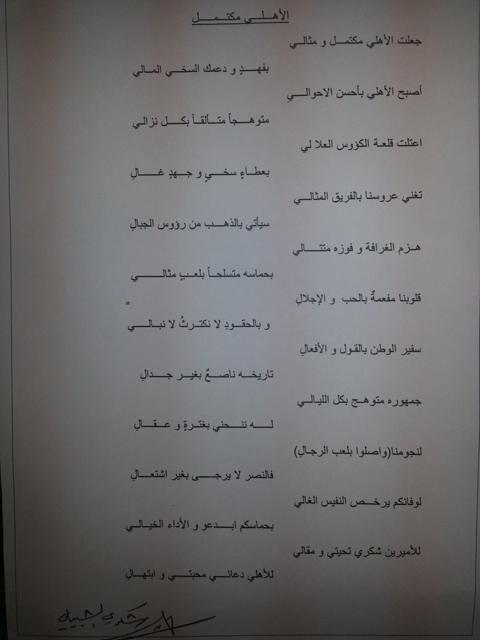 الأهلـــي مكتمـــــل
جعلت الأهلي مكتمل و مثالـــي
بفهــدٍ و دعمك السخــي المـالي
أصبح الأهلي بأحسن الاحوالـــي
متوهجـاً متــألقـاً بكــــل نزالـي
اعتلت قلعـة الكؤوس العلا لي
بعطــاءٍ سخــيٍ و جــهدٍ غــــالِ
تغني عروسنا بالفريق المثالـــي
سيأتي بالذهـــب من رؤوس الجبالِ
هــزم الغرافة و فوزه متتــــالي
بحماسه متسلحــاً بلعبٍ مثالـــــي
قلوبنا مفعمةٌ بالحب و الإجلالِ
و بالحقـــودِ لا نكتــرثُ لا نبـالــي
سفير الوطن بالقول و الأفعالِ
تاريخــه ناصــعٌ بغيــر جـــدالِ
جمهوره متوهـج بكل الليالـــي
لــــه ننحني بغترةٍ و عـــقـالِ
لنجومنا(واصلوا بلعب الرجالِ)
فالنصر لا يرجـــى بغير اشتعـــالِ
لوفائكم يرخــص النفيس الغالي
بحماسكم ابـــدعو و الأداء الخيالـــي
للأميرين شكري تحيتي و مقالي
للأهلي دعائــي محبتــي و ابتهـالِ